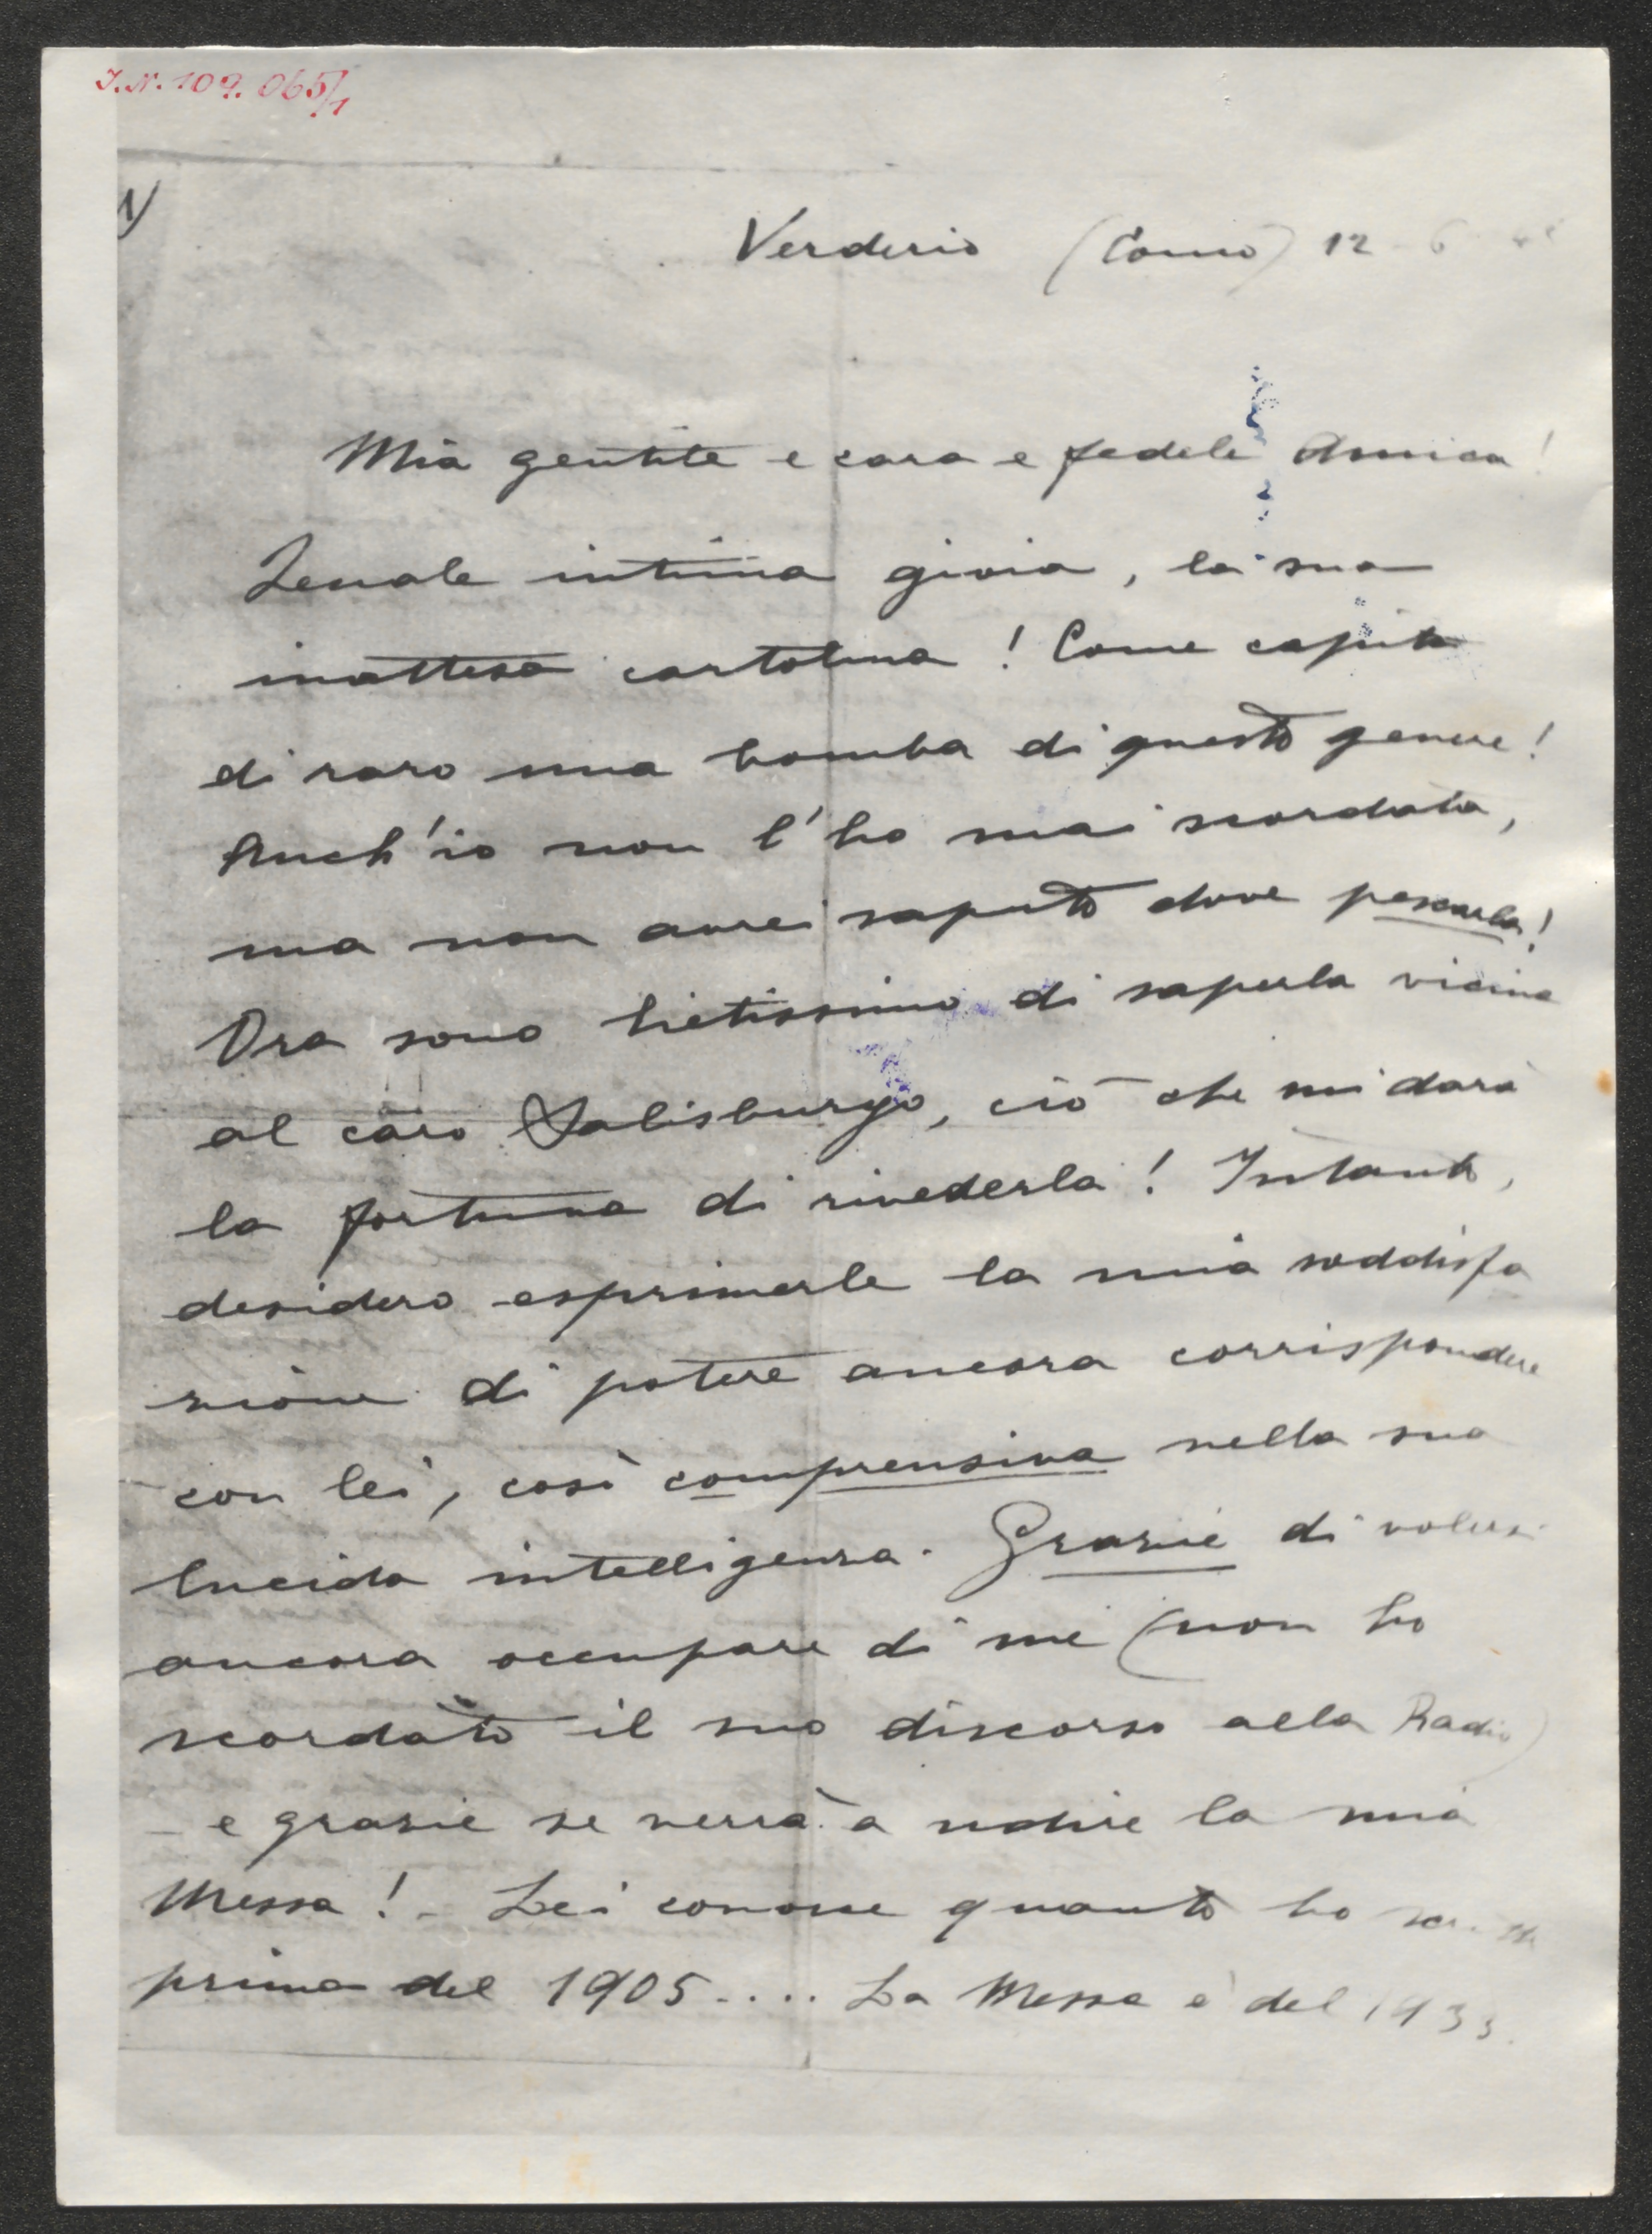 J.N. 109.065/1
1)
Verderio (Como) 12 - 6
Mia gentile e cara e fedele Amica!
intima gioia, la sua
inattesa cartolina! Come capita
di raro una bomba di questo genere!
Anch'io non l'ho mai scordata,
ma non avrei saputo dove pescarla!
Ora sono lietissimo di saperla vicina
al caro Salisburgo, ciò che mi darà
la fortuna di rivederla! Intanto,
desidero esprimerle la mia soddisfa
zione di potere ancora corrispondere
con lei, così comprensiva nella sua
lucida intelligenza. Grazie di volersi
ancora occupare di me (non ho
scordato il suo discorso alla Radio)
- e grazie se verrà a udire la mia
Messa! - Lei conosce quanto ho
prima del 1905.... La Messa è del 1933.